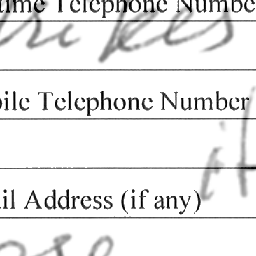 time Telephone Number
rikes
bile Telephone Number
it
ail Address (if any)
ose